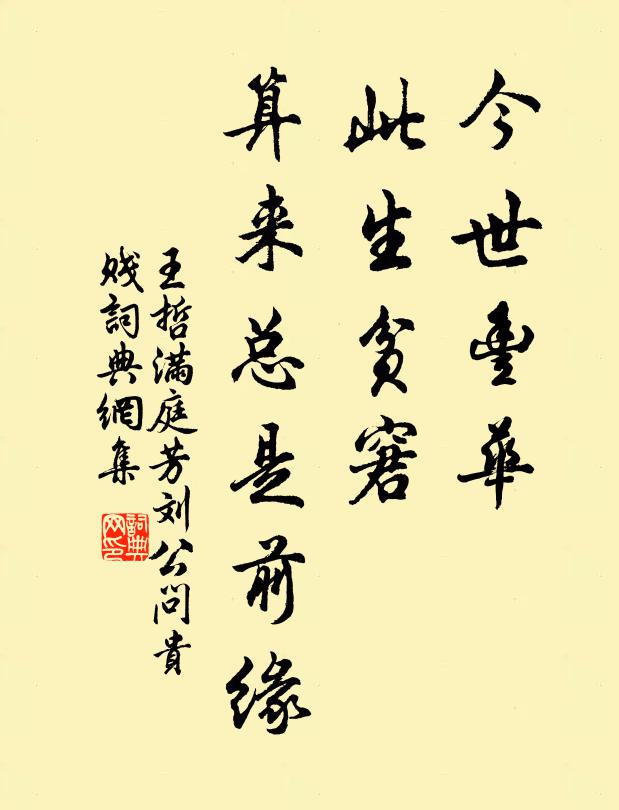 今世豊華
此生贫窘
算来总是前缘
王哲满庭芳刘公问貴
贱詞典網集
詞典网印